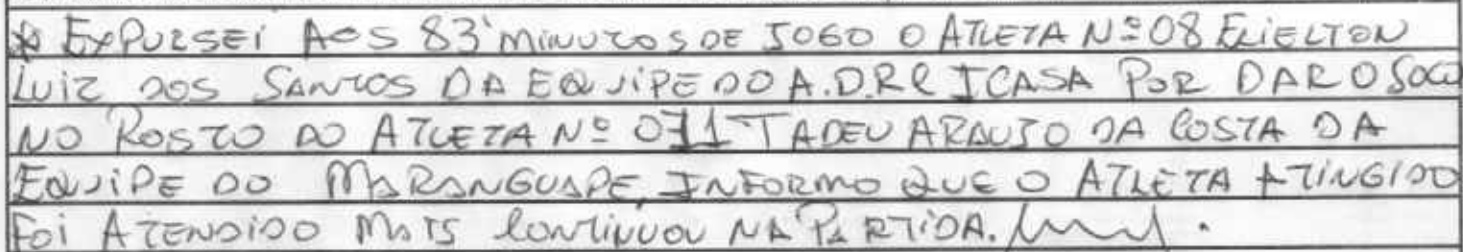 * EXPULSEI AOS 83' MINUTOS DE JOGO O ATLETA Nº 08 ELIELTON
LUIZ DOS SANTOS DA EQUIPE DO A.D.R.C ICASA POR DAR O SOCO
NO ROSTO DO ATLETA Nº 011 TADEU ARAUJO DA COSTA DA
EQUIPE DO MARANGUAPE, INFORMO QUE O ATLETA ATINGIDO
FOI ATENDIDO MAIS CONTINUOU NA PARTIDA.